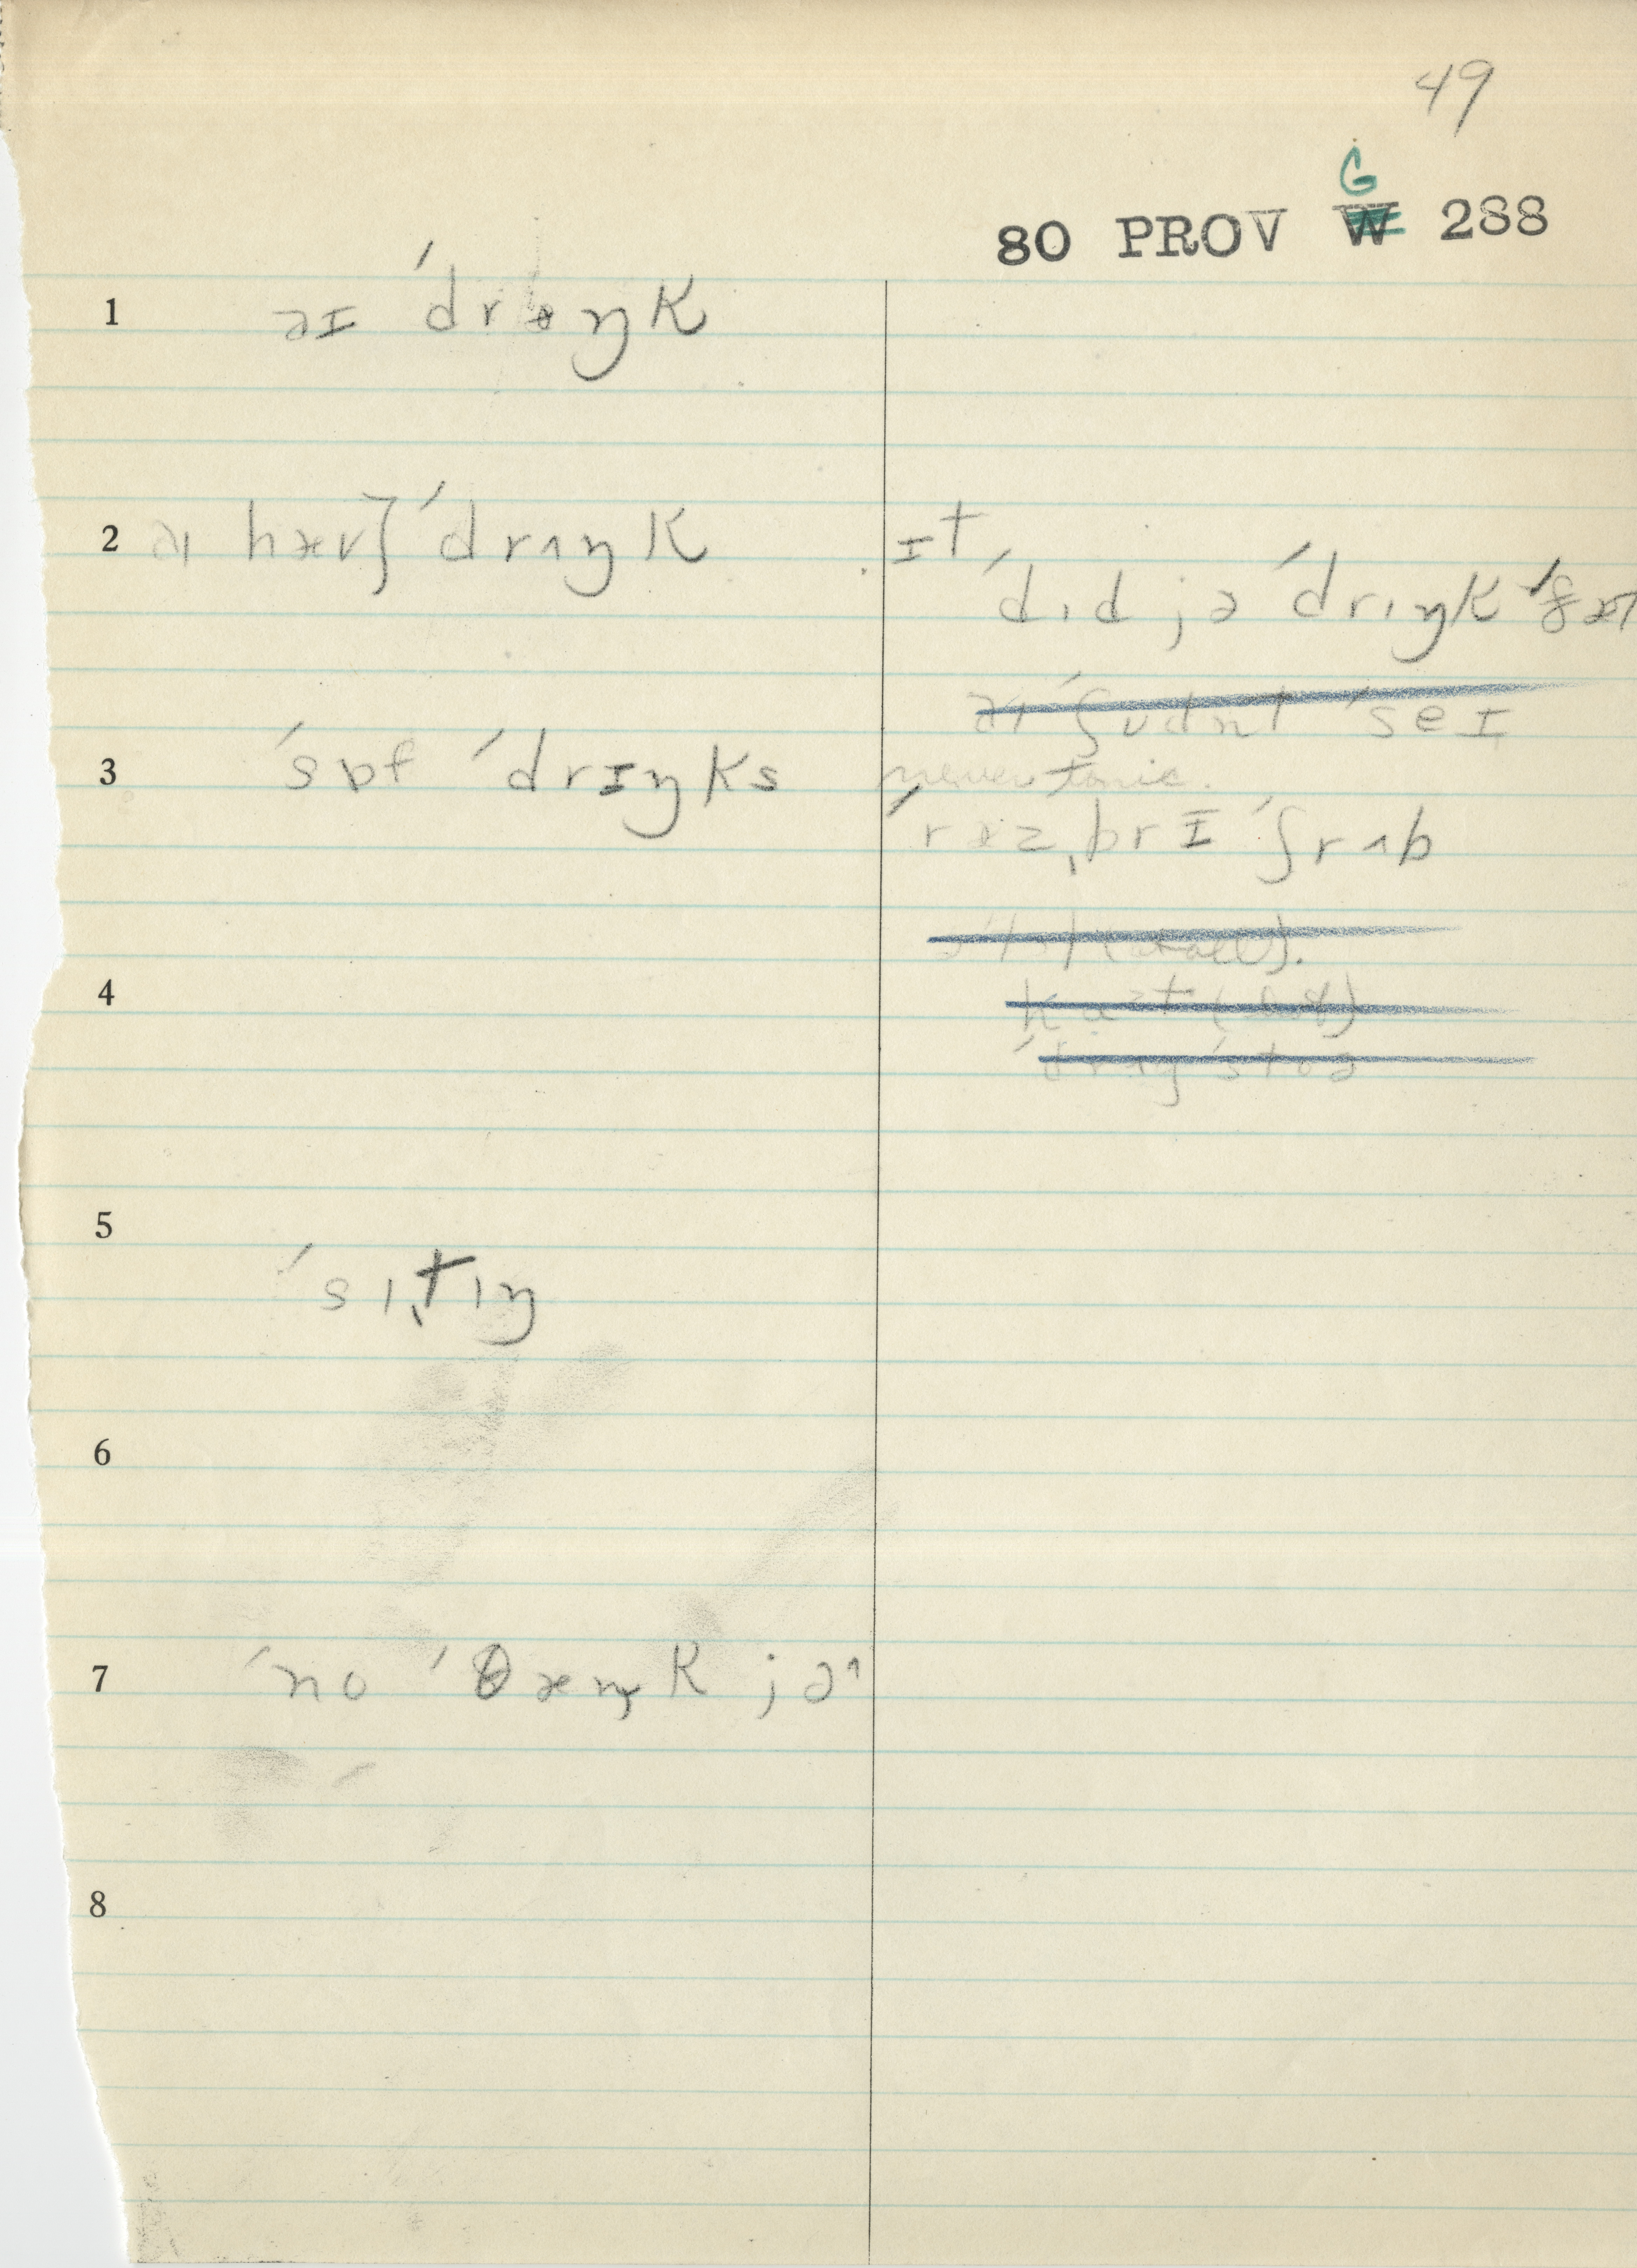 49
G
80 PROV W 288
1 əɪ ˈdrɪŋk
2 aɪ hæv} ˈdrʌŋk
ɪt
ˈdɪd jə ˈdrɪŋk
ˈʃʊdnt ˈseɪ
3 ˈsɒf ˈdrɪŋks
never tonic.
ˈræzˌbrɪ ˈʃrʌb
4
5
ˈsɪˌtɪŋ
6
7 ˈno ˈθæŋk jə
8